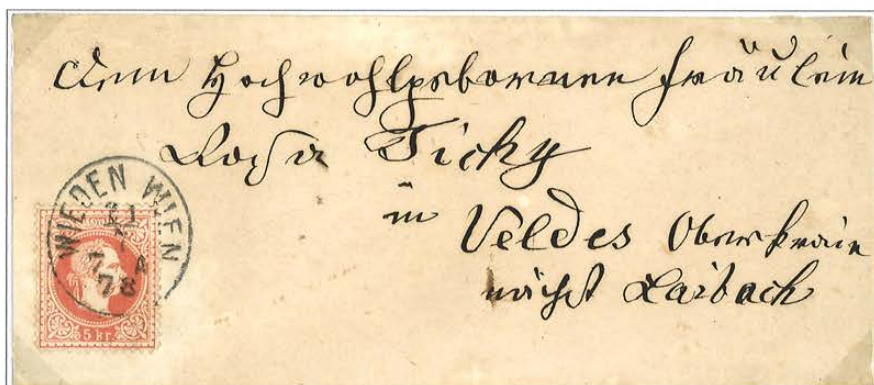 Dem Hochwohlgebornen Fräulein
Rosa Ticky
in Veldes Oberkrain
nächst Laibach
WIEDEN WIEN
78
5 kr.